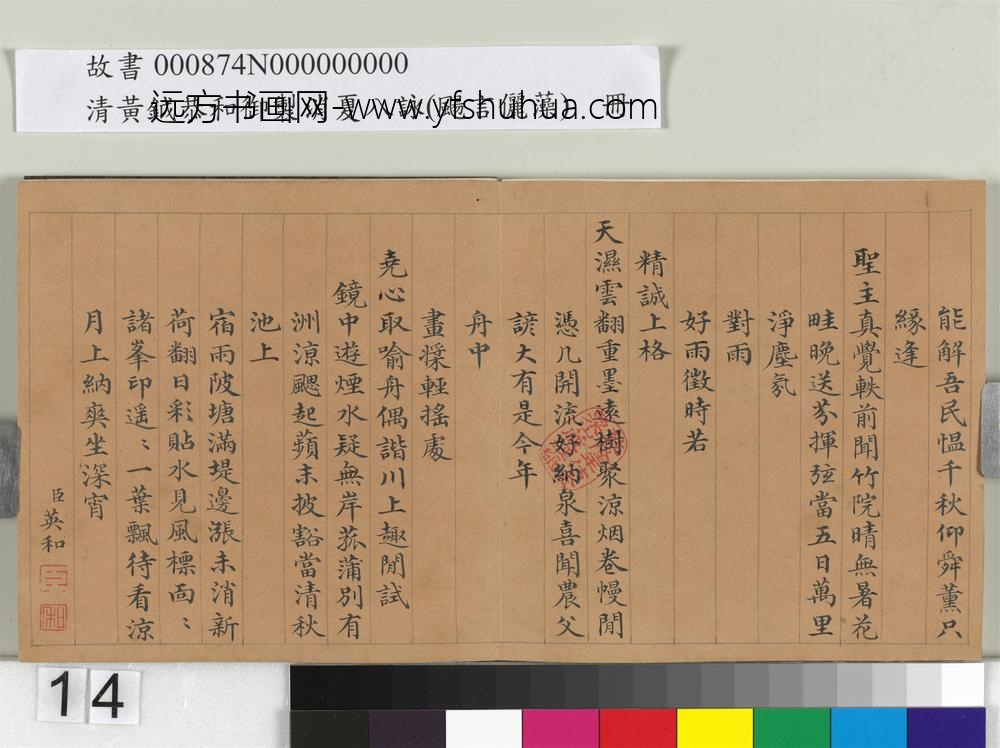 故書 000874N000000000
清黃鉞恭和御製消夏
远方书画网-www.yfshuhua.com
冊
能解吾民慍千秋仰舜薰只
緣逢
聖主真覺軼前聞竹院晴無暑花
畦晚送芬揮弦當五日萬里
淨塵氛
對雨
好雨徵時若
精誠上格
天濕雲翻重墨遠樹聚涼烟卷幔閒
憑几開流好納泉喜聞農父
諺大有是今年
舟中
畫槳輕搖處
堯心取喻舟偶諧川上趣閒試
鏡中遊煙水疑無岸菰蒲別有
洲涼颸起蘋末披豁當清秋
池上
宿雨陂塘滿堤邊漲未消新
荷翻日彩貼水見風標面〻
諸峯印遥〻一葉飄待看涼
月上納爽坐深宵
臣英和
14